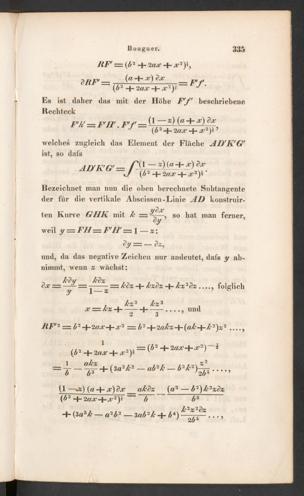 Bouguer. 335
RF' = (b² + 2ax + x²)^½,
∂RF' = (a + x) ∂x / (b² + 2ax + x²)^½ = F'f'.
Es ist daher das mit der Höhe F'f' beschriebene
Rechteck
F'k' = F'H' . F'f' = (1 — z) (a + x) ∂x / (b² + 2ax + x²)^½,
welches zugleich das Element der Fläche AD'K'G'
ist, so dafs
AD'K'G' = ∫ (1 — z) (a + x) ∂x / (b² + 2ax + x²)^½.
Bezeichnet man nun die oben berechnete Subtangente
der für die vertikale Abscissen-Linie AD konstruir-
ten Kurve GHK mit k = y∂x / ∂y, so hat man ferner,
weil y = FH = F'H' = 1 — z:
∂y = — ∂z,
und, da das negative Zeichen nur andeutet, dafs y ab-
nimmt, wenn z wächst:
∂x = k∂y / y = k∂z / 1 — z = k∂z + kz∂z + kz²∂z ...., folglich
x = kz + kz² / 2 + kz³ / 3 ...., und
RF'² = b² + 2ax + x² = b² + 2akz + (ak + k²)z² ....,
1 / (b² + 2ax + x²)^½ = (b² + 2ax + x²)^—½
= 1 / b — akz / b³ + (3a²k² — ab²k — b²k²) z² / 2b⁵ ....,
(1 — z) (a + x) ∂x / (b² + 2ax + x²)^½ = ak∂z / b — (a² — b²) k²z∂z / b³
+ (3a³k — a²b² — 3ab²k + b⁴) k²z²∂z / 2b⁵ ....,